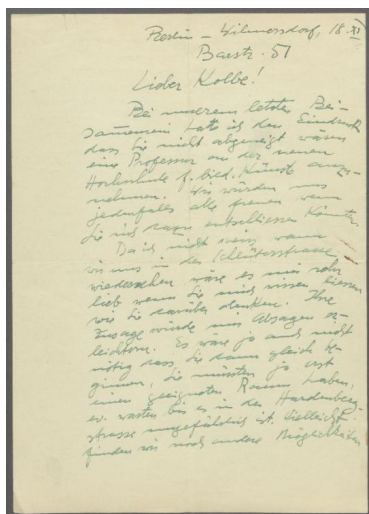 Berlin – Wilmersdorf, 18. XI
Barstr. 51
Lieber Kolbe!
Bei unserem letzten Bei-
sammensein hatte ich den Eindruck
dass Sie nicht abgeneigt wären
eine Professur an der neuen
Hochschule f. bild. Künste anzu-
nehmen. Wir würden uns
jedenfalls alle freuen wenn
Sie sich dazu entschliessen könnten.
Da ich nicht weiss wann
wir uns in der Schlüterstrasse
wiedersehen wäre es mir sehr
lieb wenn Sie mich wissen liessen
wie Sie darüber denken. Ihre
Zusage würde mir Absagen er-
leichtern. Es wäre ja auch nicht
nötig dass Sie dann gleich be-
ginnen, Sie müssten ja erst
einen geeigneten Raum haben,
ev. warten bis es in der Hardenberg-
strasse ist. Vielleicht
finden wir noch andere Möglichkeiten